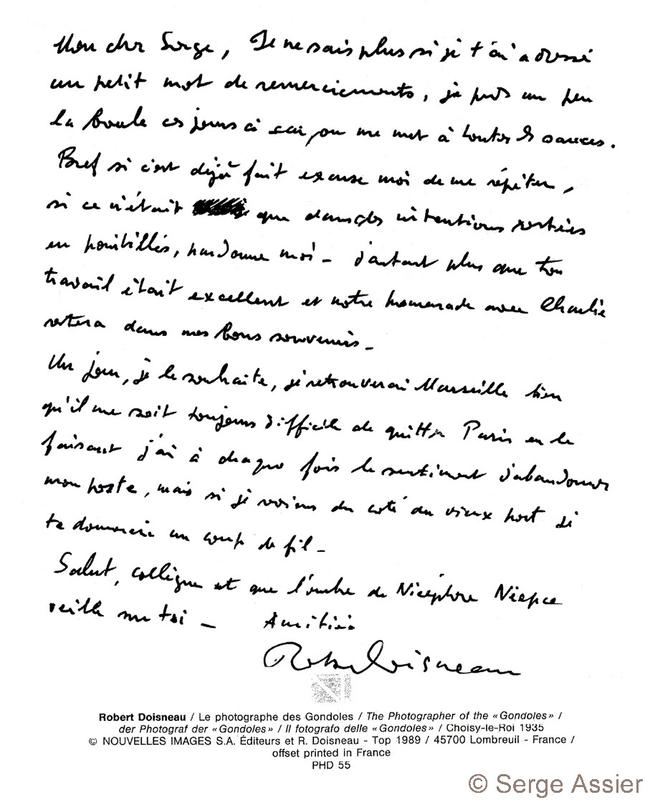 Mon cher Serge, Je ne sais plus si je t'ai adressé
un petit mot de remerciements, je perds un peu
la boule ces jours ci car on me met à toutes les sauces.
Bref si c'est déjà fait excuse moi de me répéter,
si ce n'était que dans des intentions restées
en pointillés, pardonne moi - d'autant plus que ton
travail était excellent et notre promenade avec Charlie
restera dans mes bons souvenirs -
Un jour, je le souhaite, je retrouverai Marseille bien
qu'il me soit toujours difficile de quitter Paris en le
faisant j'ai à chaque fois le sentiment d'abandonner
mon poste, mais si je voisine du coté du vieux port je
te donnerai un coup de fil -
Salut, collègue et que l'ombre de Nicéphore Niepce
veille sur toi - Amitiés
Robert Doisneau
Robert Doisneau / Le photographe des Gondoles / The Photographer of the «Gondoles» /
der Photograf der «Gondoles» / Il fotografo delle «Gondoles» / Choisy-le-Roi 1935
© NOUVELLES IMAGES S.A. Éditeurs et R. Doisneau - Top 1989 / 45700 Lombreuil - France /
offset printed in France
PHD 55
© Serge Assier